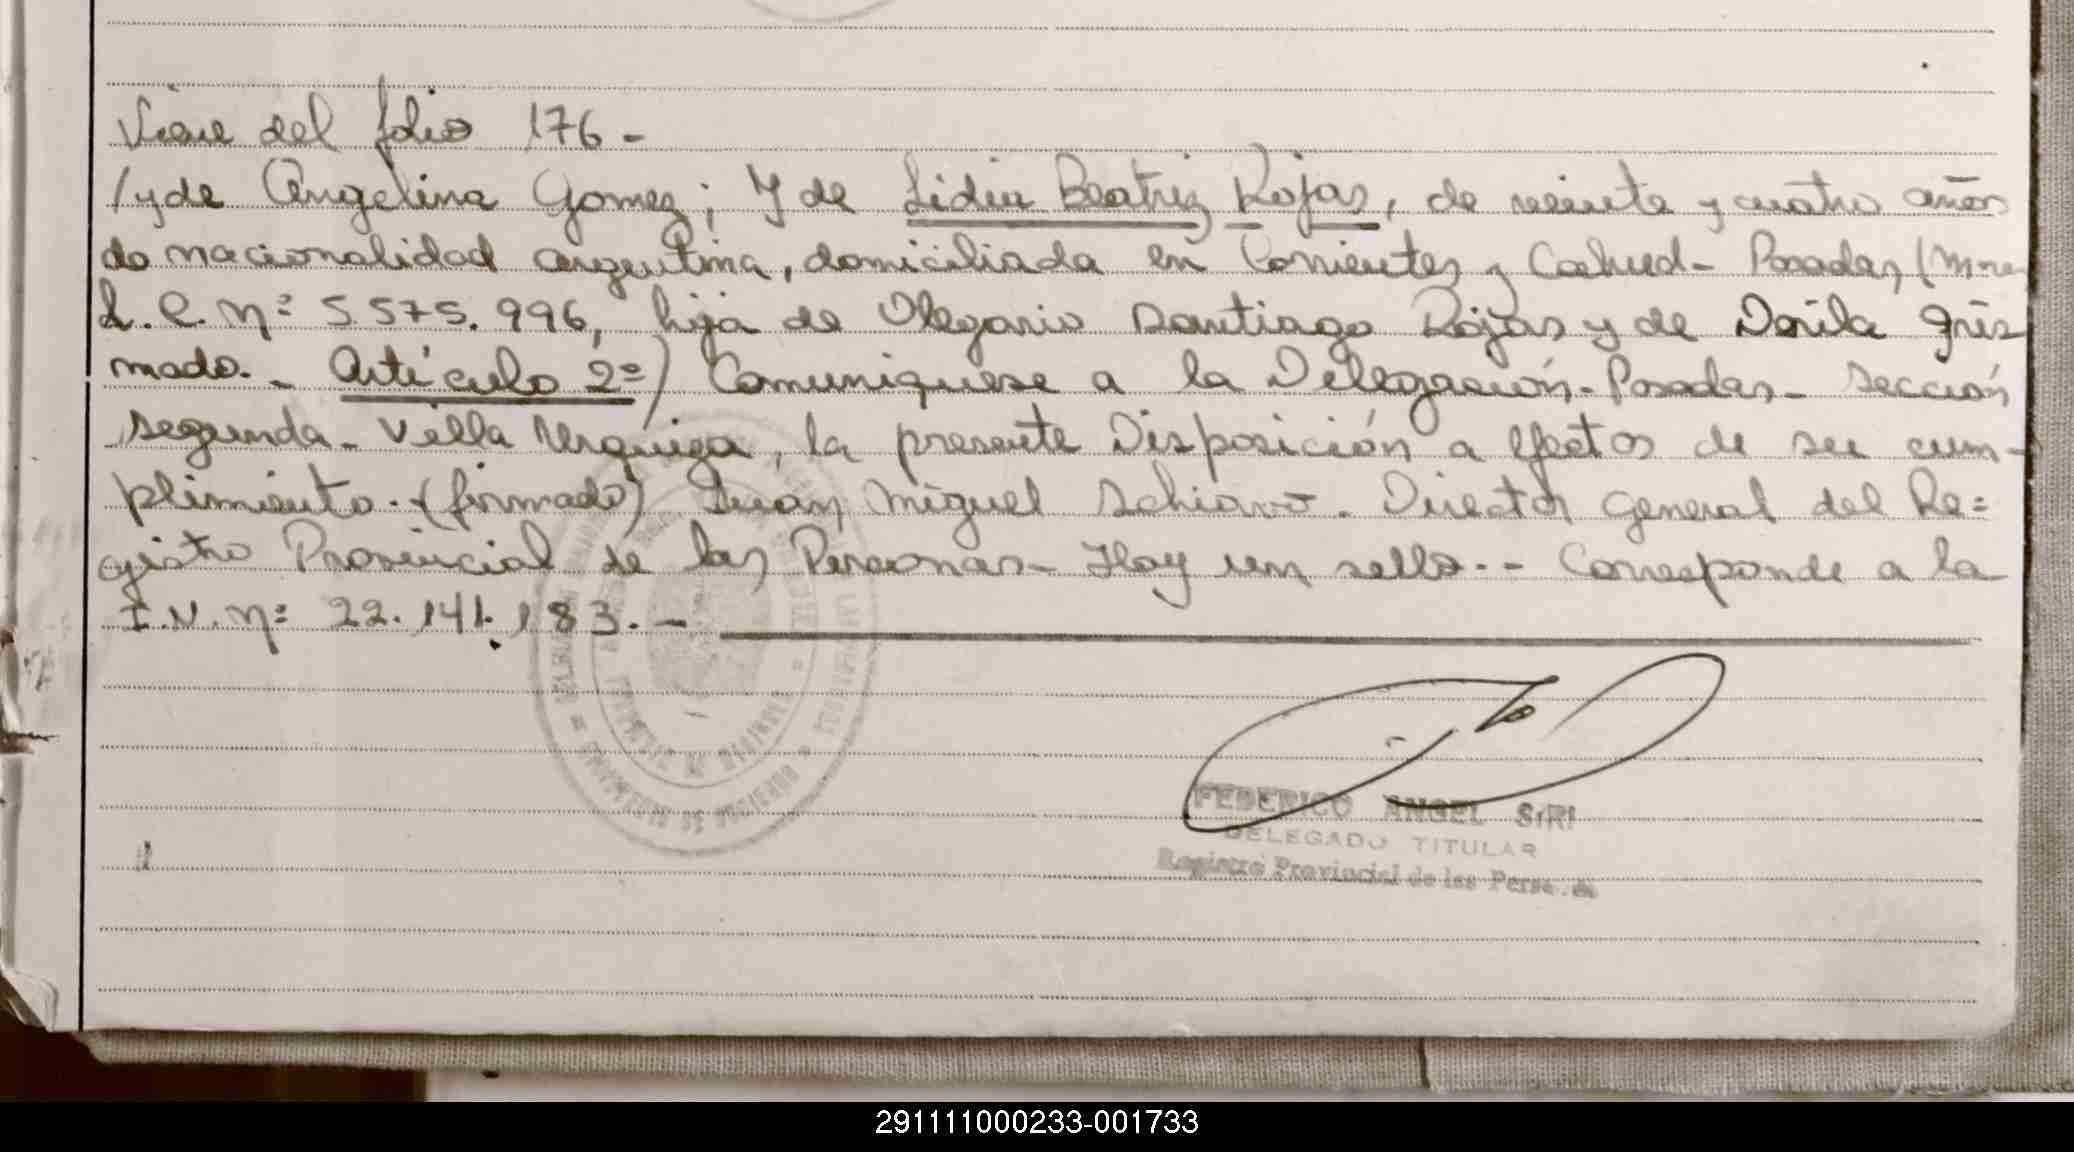 Viene del folio 176 -
/y de Angelina Gomez; Y de Lidia Beatriz Rojas, de veinte y cuatro años
de nacionalidad argentina, domiciliada en Corrientes y - Posadas, (Mnes
L.C. Nº 5.575.996, hija de Olegario Santiago Rojas y de Dorila Gris
mado. - Artículo 2º) Comuniquese a la Delegación - Posadas - Sección
segunda - Villa Urquiza, la presente Disposición a efectos de su cum-
plimiento. - (firmado) Juan Miguel Schiavo. Director General del Re=
gistro Provincial de las Personas - Hay un sello. - Corresponde a la
I.N. Nº 22.141.183. -
FEDERICO ANGEL SIRI
DELEGADO TITULAR
Registro Provincial de las
291111000233-001733